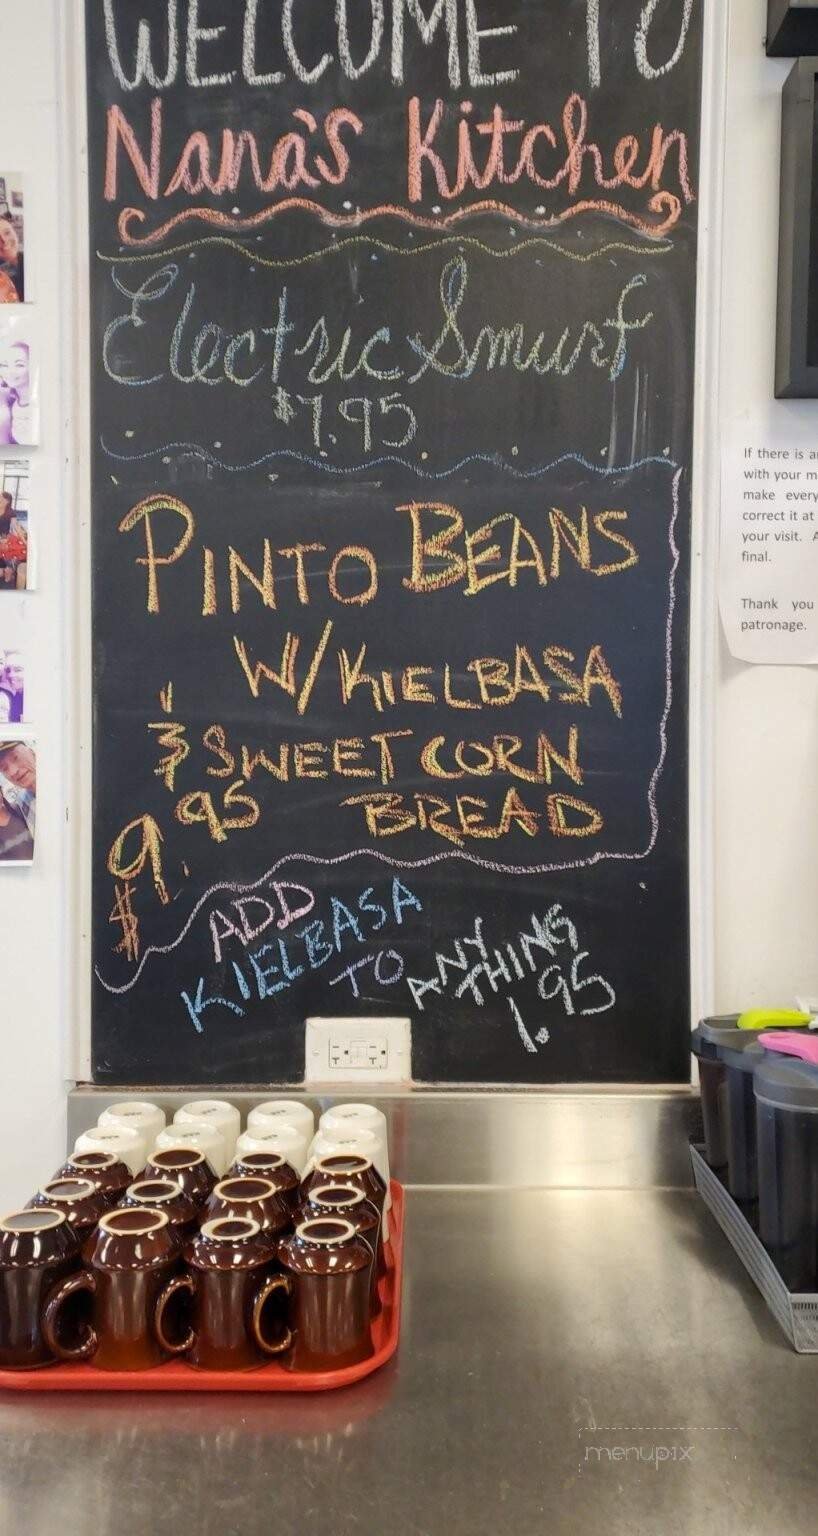 WELCOME TO
Nana's Kitchen
Electric Smurf
$7.95
PINTO BEANS
W/KIELBASA
& SWEET CORN
BREAD
$9.95
ADD
KIELBASA
TO ANY
THING
1.95
If there is
with your
make every
correct it at
your visit.
final.
Thank you
patronage.
menupix